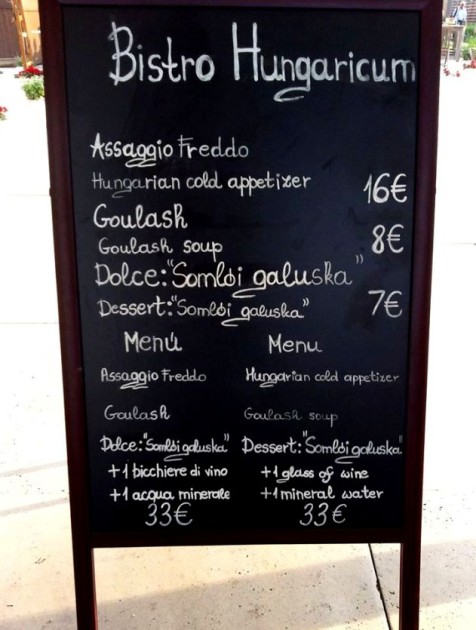 Bistro Hungaricum
Assaggio Freddo
Hungarian cold appetizer 16€
Goulash
Goulash soup 8€
Dolce: "Somlói galuska"
Dessert: "Somlói galuska" 7€
Menú Menu
Assaggio Freddo Hungarian cold appetizer
Goulash Goulash soup
Dolce: "Somlói galuska" Dessert: "Somlói galuska"
+1 bicchiere di vino +1 glass of wine
+1 acqua minerale +1 mineral water
33€ 33€